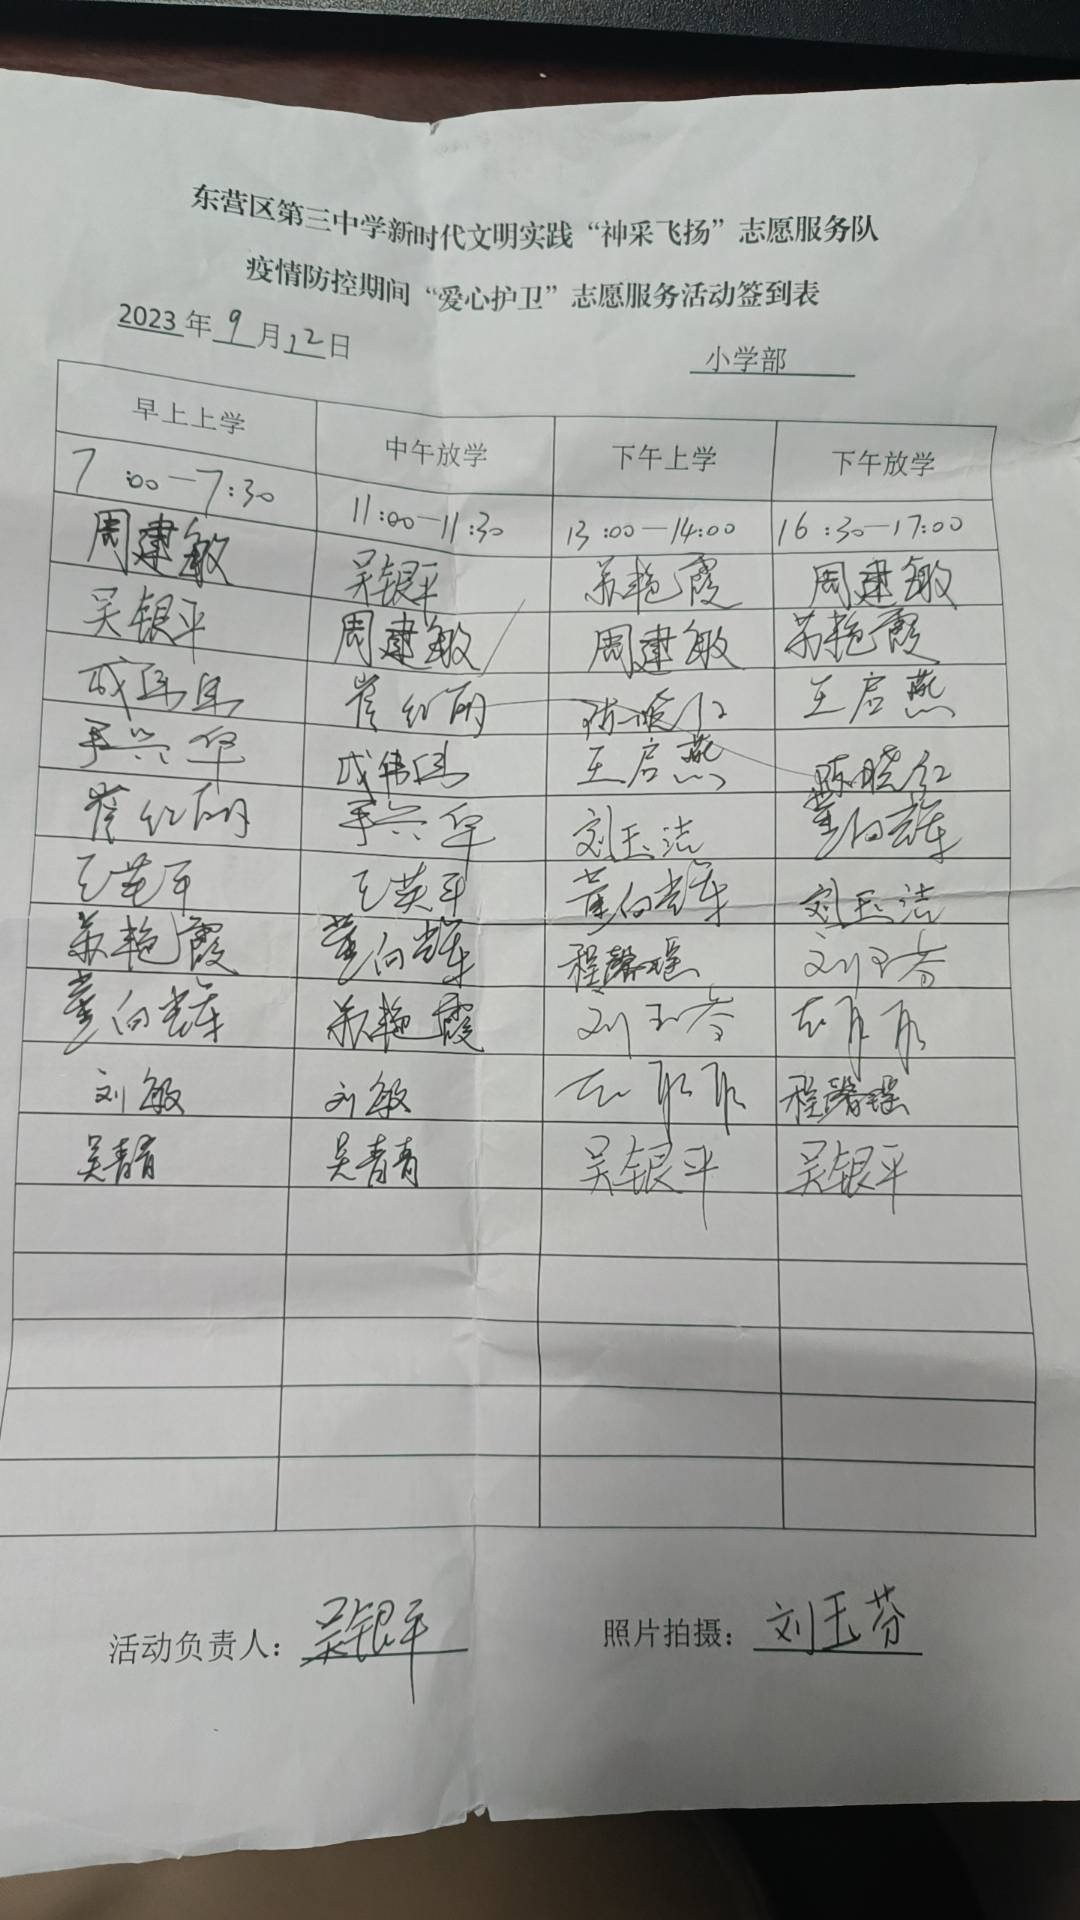 东营区第三中学新时代文明实践“神采飞扬”志愿服务队
疫情防控期间“爱心护卫”志愿服务活动签到表
2023年9月12日 小学部
早上上学 中午放学 下午上学 下午放学
7:00—7:30 11:00—11:30 13:00—14:00 16:30—17:00
周建敏 吴银平 苏艳霞 周建敏
吴银平 周建敏 周建敏 苏艳霞
崔红丽 陈晓红 王启燕
成伟伟 王启燕 陈晓红
崔红丽 刘玉洁 董向辉
王英平 王英平 董向辉 刘玉洁
苏艳霞 董向辉 程馨瑶 刘玉芬
董向辉 苏艳霞 刘玉芬
刘敏 刘敏 程馨瑶
吴青青 吴青青 吴银平 吴银平
活动负责人：吴银平 照片拍摄：刘玉芬